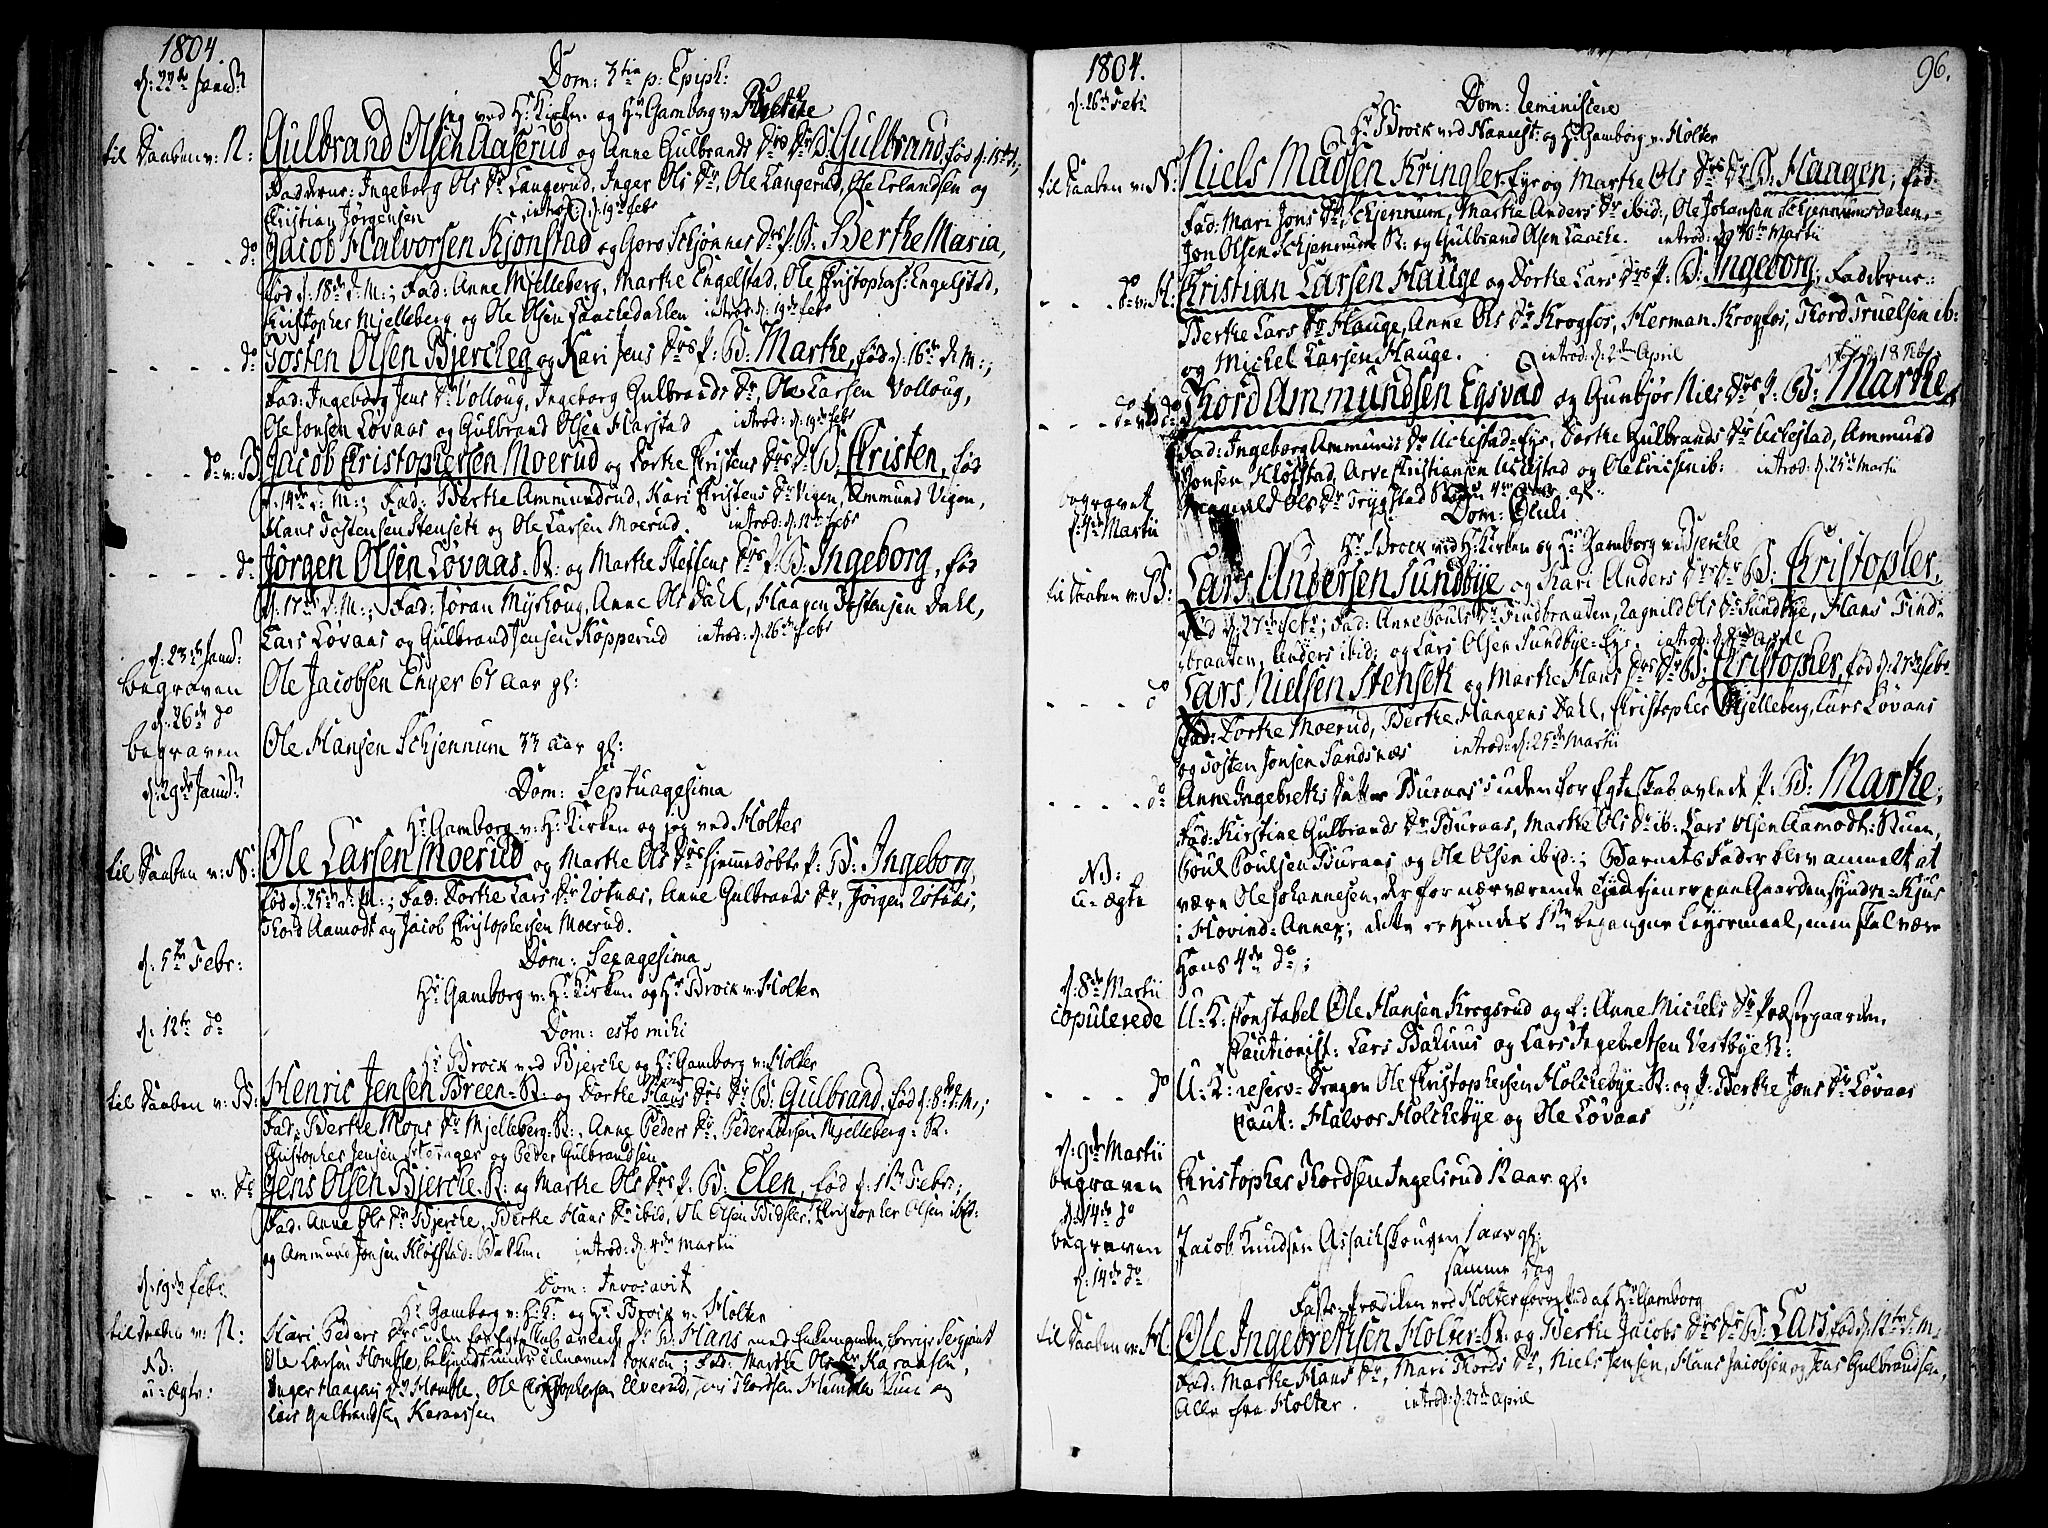 1804
d: 22de Janr:
Dom: 3tia p: Epiph:
jeg ved H: Kirken og Hr Gamborg v: Bjerke
til Daaben v: N: Gulbrand Olsen Aaserud og Anne Gulbrands Drs Dr B: Gulbrand, fød d: 15de;
Fadderne: Ingeborg Ols Dr Langerud, Inger Ols Dr, Ole Langerud, Ole Erlandsen og
Christian Jørgensen introd: d: 19de Febr
do Jacob Halvorsen Kjønstad og Goro Schjønnes Drs P: B: Berthe Maria,
fød d: 18de d: M:; Fad: Anne Mjelleberg, Marthe Engelstad, Ole Christophers: Engelstad,
Christopher Mjelleberg og Ole Olsen Haachedahlen introd: d: 19de Febr
do Tosten Olsen Bjercheg og Kari Jens Drs P: B: Marthe, fød d: 16de d: M:;
Fad: Ingeborg Jens Dr Volloug, Ingeborg Gulbrands Dr, Ole Larsen Volloug,
Ole Jonsen Løvaas og Gulbrand Olsen Harstad introd: d: 19de Febr
do v: B. Jacob Christophersen Moerud og Dorthe Christens Drs D: B: Christen, fød
d: 14de d: M:; Fad: Berthe Ammundrud, Kari Christens Dr Vigen, Ammund Vigen,
Hans Tostensen Stenseth og Ole Larsen Moerud. introd: d: 12te Febr
do Jørgen Olsen Løvaas-E: og Marthe Steffens Drs P: B: Ingeborg, fød
d: 17de d: M:; Fad: Jøran Myhroug, Anne Ols Dahl, Haagen Tostensen Dahl,
Lars Løvaas og Gulbrand Jensen Kopperud introd: d: 26de Febr
d: 23de Janr:
begraven Ole Jacobsen Enger 67 Aar gl:
d: 26de do
begraven Ole Hansen Schjennum 33 aar gl:
d: 29de Janr:
Dom: Septuagesima
Hr Gamborg v: H: Kirken og jeg ved Holter
til Daaben v: N: Ole Larsen Moerud og Marthe Ols Drs hjemmedøbte P: B: Ingeborg,
fød d: 25de d: M:; Fad: Dorthe Lars Dr Rotnæs, Anne Gulbrands Dr, Jørgen Rotnæs,
Thord Aamodt og Jacob Christophersen Moerud.
d: 5te Febr:
Dom: Sexagesima
Hr Gamborg v: H: Kirken og Hr Brock v: Holter
d: 12te do
Dom: esto mihi
Hr Brock ved Bjerche og Hr Gamborg v: Holter
til Daaben v: B: Henric Jensen Breen-E: og Dorthe Hans Drs Dr B: Gulbrand, fød d: 8de d: M:;
Fad: Berthe Mons Dr Mjelleberg-E:, Anne Peders Dr, Peder Larsen Mjelleberg-E:
Christopher Jensen og Peder Gulbrandsen
v: do Jens Olsen Bjerche-E: og Marthe Ols Drs P: B: Elen, fød d: 1ste Febr:;
Fad: Anne Ols Dr Bjerche, Berthe Hans Dr ibid, Ole Olsen Bidsler, Christopher Olsen ibid:
og Ammund Jonsen Kløfstad-Bakken. introd: d: 4de Martii
d: 19de Febr:
Dom: Invocavit
Hr Gamborg v: H: K: og Hr Brock v: Holter
til Daaben v: N: Kari Peders Drs uden for Egteskab avlede Dr B: Hans med Enkemanden forrige Sergiant
NB: Ole Larsen Homble, bekiendt under Tilnavnet; Fad: Marthe Ols Dr Karaasen,
u-ægte: Inger Haagens Dr Homble, Ole Christophersen Elverud, Jens Thordsen og
Lars Gulbrandsen Karaassen
1804.
96.
d: 26de Febr:
Dom: Reminiscere
Hr Brock ved Nannest: og Hr Gamborg v: Holter
til Daaben v: N: Niels Madsen Kringler eje og Marthe Ols Drs Dr B: Haagen, fød
Fad: Mari Jons Dr Schjennum, Marthe Anders Dr ibid:, Ole Johansen Schjennumsdalen,
Jon Olsen Schjennum E: og Gulbrand Olsen Haache. introd: d: Martii
do v: H: Christian Larsen Hauge og Dorthe Lars Drs P: B: Ingeborg, Fadderne:
Berthe Lars Dr Hauge, Anne Ols Dr Krogfos, Herman Krogfos, Thord Truelsen ib:
og Michel Larsen Hauge. introd: d: 2den April
fød d: 18 Febr
do ved do Thord Ammundsen Egsvad og Gunbjør Niels Drs P: B: Marthe,
Fad: Ingeborg Ammunds Dr Uchestad-Eje, Dorthe Gulbrands Dr Uchestad, Ammund
Jonsen Kløfstad, Arve Christiansen Uchestad og Ole Ericsen ib: introd: d: 25de Martii
begravet Ragnild Ols Dr Trygstad gl:
d: 4de Martii
Dom: Oculi
Hr Brock ved H: Kirken og Hr Gamborg v: Bjerche
til Daaben v: B: Lars Andersen Sundbye og Kari Anders Drs Dr B: Christopher,
fød d: 27de Febr; Fad: Anne Pouls Dr Tindbraaten, Ragnild Ols Dr Sundbye, Hans Tind-
braaten, Anders ibid: og Lars Olsen Sundbye-Eje. introd: d: 8de Aprile
do Lars Nielsen Stenseth og Marthe Hans Drs Dr B: Christopher, fød d: 27de Febr
Fad: Dorthe Moerud, Berthe Haagens Dahl, Christopher Mjelleberg, Lars Løvaas
og Tosten Jonsen Sandsnæs introd: d: 25de Martii
do Anne Ingebreths Datter Buraas's uden for Egteskab avlede P: B: Marthe;
Fad: Kirstine Gulbrands Dr Buraas, Marthe Ols Dr ib: Lars Olsen Aamodt-Stuen,
NB: Poul Poulsen Buraas, og Ole Olsen ibid:; Barnets Fader blev anmeldt at
u-ægte være Ole Johannesen, der for nærværende Tjd tjener paa Gaarden Syndre-Kjus
i Hovind-Annex; dette er hendes 1ste begangne Leyermaal, men skal være
hans 4de do;
d: 8de Martii
copulerede U: K: Constabel Ole Hansen Krogsrud og P: Anne Michels Dr Præstegaarden.
Cautionist: Lars Bakuus og Lars Ingebretsen Vestbye E:
do U: K: reserv-Dragon Ole Christophersen Holchebye-E: og P: Berthe Jons Dr Løvaas
Caut: Halvor Holchebye og Ole Løvaas
d: 9de Martii
begraven Christopher Thordsen Ingelsrud 12 Aar gl:
d: 14de do
begraven Jacob Knudsen Assachskougen 1 aar gl:
d: 14de do samme Dag
Faste-Prædiken ved Holter forrettet af Hr Gamborg
til Daaben v: H. Ole Ingebrethsen Holter-E: og Berthe Jacobs Drs Dr B: Lars fød d: 12te d: M:
Fad: Marthe Hans Dr, Mari Thords Dr, Niels Jensen, Hans Jacobsen og Jens Gulbrandsen,
Alle fra Holter. introd: d: 27de April